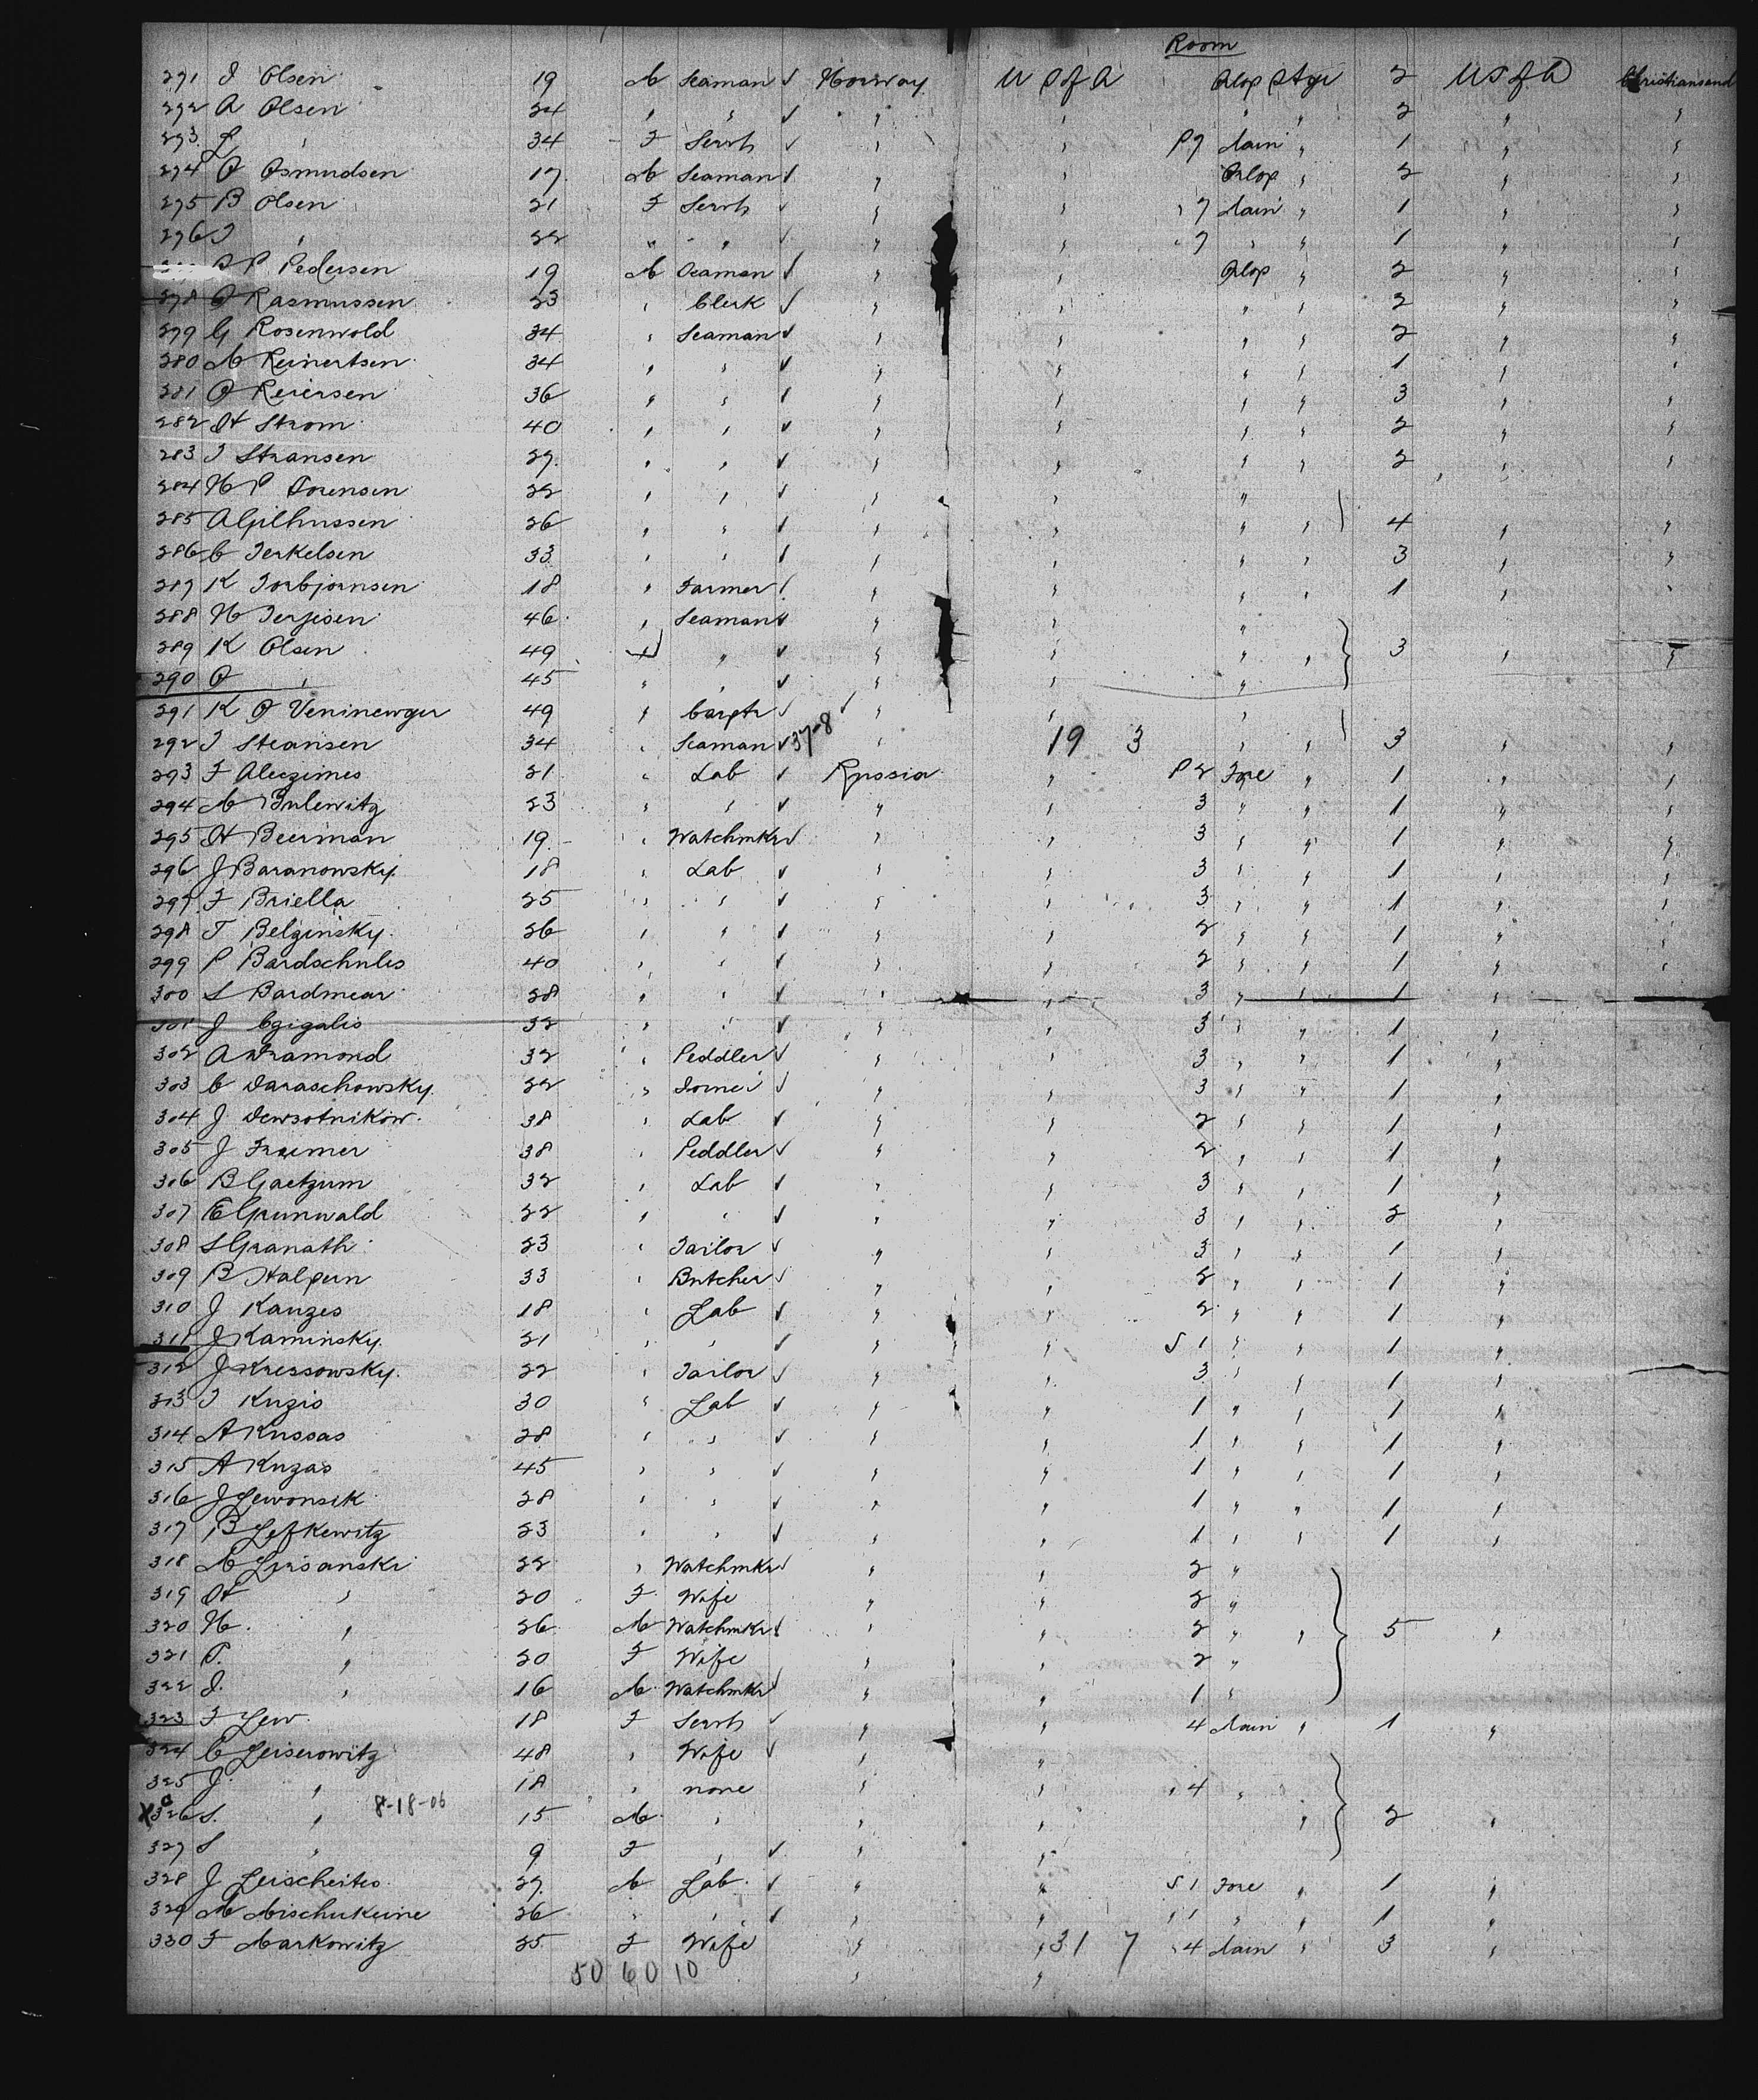 Room
271 J Olsen 19 M Seaman ✓ Norway U S of A Orlop Stge 2 U S of A Christiansand
272 A Olsen 24 " " ✓ " " " " 2 " "
273 L " 34 F Servt ✓ " " P 7 Main " 1 " "
274 O Osmundsen 17 M Seaman ✓ " " Orlop " 2 " "
275 B Olsen 21 F Servt ✓ " " " 7 Main " 1 " "
276 J " 22 " " ✓ " " " 7 " " 1 " "
P Pedersen 19 M Seaman ✓ " " Orlop " 2 " "
278 O Rasmussen 23 " Clerk ✓ " " " " 2 " "
279 G Rosenwold 34 " Seaman ✓ " " " " 2 " "
280 M Reinertsen 34 " " ✓ " " " " 1 " "
281 O Reiersen 36 " " ✓ " " " " 3 " "
282 H Strom 40 " " ✓ " " " " 2 " "
283 J Stransen 27 " " ✓ " " " " 2 " "
284 N P Sorensen 22 " " ✓ " " "
285 A Gilhussen 26 " " ✓ " " " " 4 " "
286 C Terkelsen 33 " " ✓ " " " " 3 " "
287 K Torbjornsen 18 " Farmer ✓ " " " " 1 " "
288 N Terjesen 46 " Seaman ✓ " " "
289 K Olsen 49 " " ✓ " " " " 3 " "
290 O " 45 " " ✓ " " "
291 K O 49 " Carptr ✓ ✓ " " "
292 J Steansen 34 " Seaman ✓ 37-8 " 19 3 " " 3 " "
293 F Aleczimes 21 " Lab ✓ Russia " P 2 Fore " 1 " "
294 M Bulewitz 23 " " ✓ " " 3 " " 1 " "
295 H Beerman 19 " Watchmkr ✓ " " 3 " " 1 " "
296 J Baranowsky 18 " Lab ✓ " " 3 " " 1 " "
297 F Briella 25 " " ✓ " " 3 " " 1 " "
298 T Belginsky 26 " " ✓ " " 2 " " 1 " "
299 P Bardschulis 40 " " ✓ " " 2 " " 1 " "
300 S Bardmear 28 " " ✓ " " 3 " " 1 "
301 J Czigalis 32 " " ✓ " " 3 " " 1 "
302 A Dramond 32 " Peddler ✓ " " 3 " " 1 "
303 C Daraschowsky 22 " ✓ " " 3 " " 1 "
304 J Dewsotnikow 38 " Lab ✓ " " 2 " " 1 "
305 J Fraimer 38 " Peddler ✓ " " 2 " " 1 "
306 B Gaetzum 32 " Lab ✓ " " 3 " " 1 "
307 E Grunwald 22 " " ✓ " " 3 " " 2 "
308 S Granath 23 " Tailor ✓ " " 3 " " 1 "
309 B Halpern 33 " Butcher ✓ " " 2 " " 1 "
310 J Kanzes 18 " Lab ✓ " " 2 " " 1 "
311 J Kaminsky 21 " " ✓ " " S 1 " " 1 "
312 J Kressowsky 22 " Tailor ✓ " " 3 " " 1 "
313 J Kuzis 30 " Lab ✓ " " 1 " " 1 "
314 A Kussas 28 " " ✓ " " 1 " " 1 "
315 A Kuzas 45 " " ✓ " " 1 " " 1 "
316 J Lewonsik 28 " " ✓ " " 1 " " 1 "
317 B Lefkewitz 23 " " ✓ " " 1 " " 1 "
318 M Lirsanski 22 " Watchmkr ✓ " " 2 "
319 H " 20 F Wife " " 2 "
320 N. " 26 M Watchmkr ✓ " " 2 " " 5 "
321 P. " 20 F Wife " " 2 "
322 J. " 16 M Watchmkr ✓ " " 1 "
323 F Lew 18 F Servt ✓ " " 4 Main " 1 "
324 C Leiserowitz 48 " Wife ✓ " "
325 J. " 18 " none " " " 4 "
X 326 S. " 8-18-06 15 M " " " " 2 "
327 S " 9 F " ✓ " "
328 J Leischeites 27 M Lab ✓ " " S 1 Fore " 1 "
329 M Mischukeine 26 " " ✓ " " " 1 " " 1 "
330 F Markowitz 25 F Wife " " 31 7 " 4 Main " 3 "
50 60 10 " "